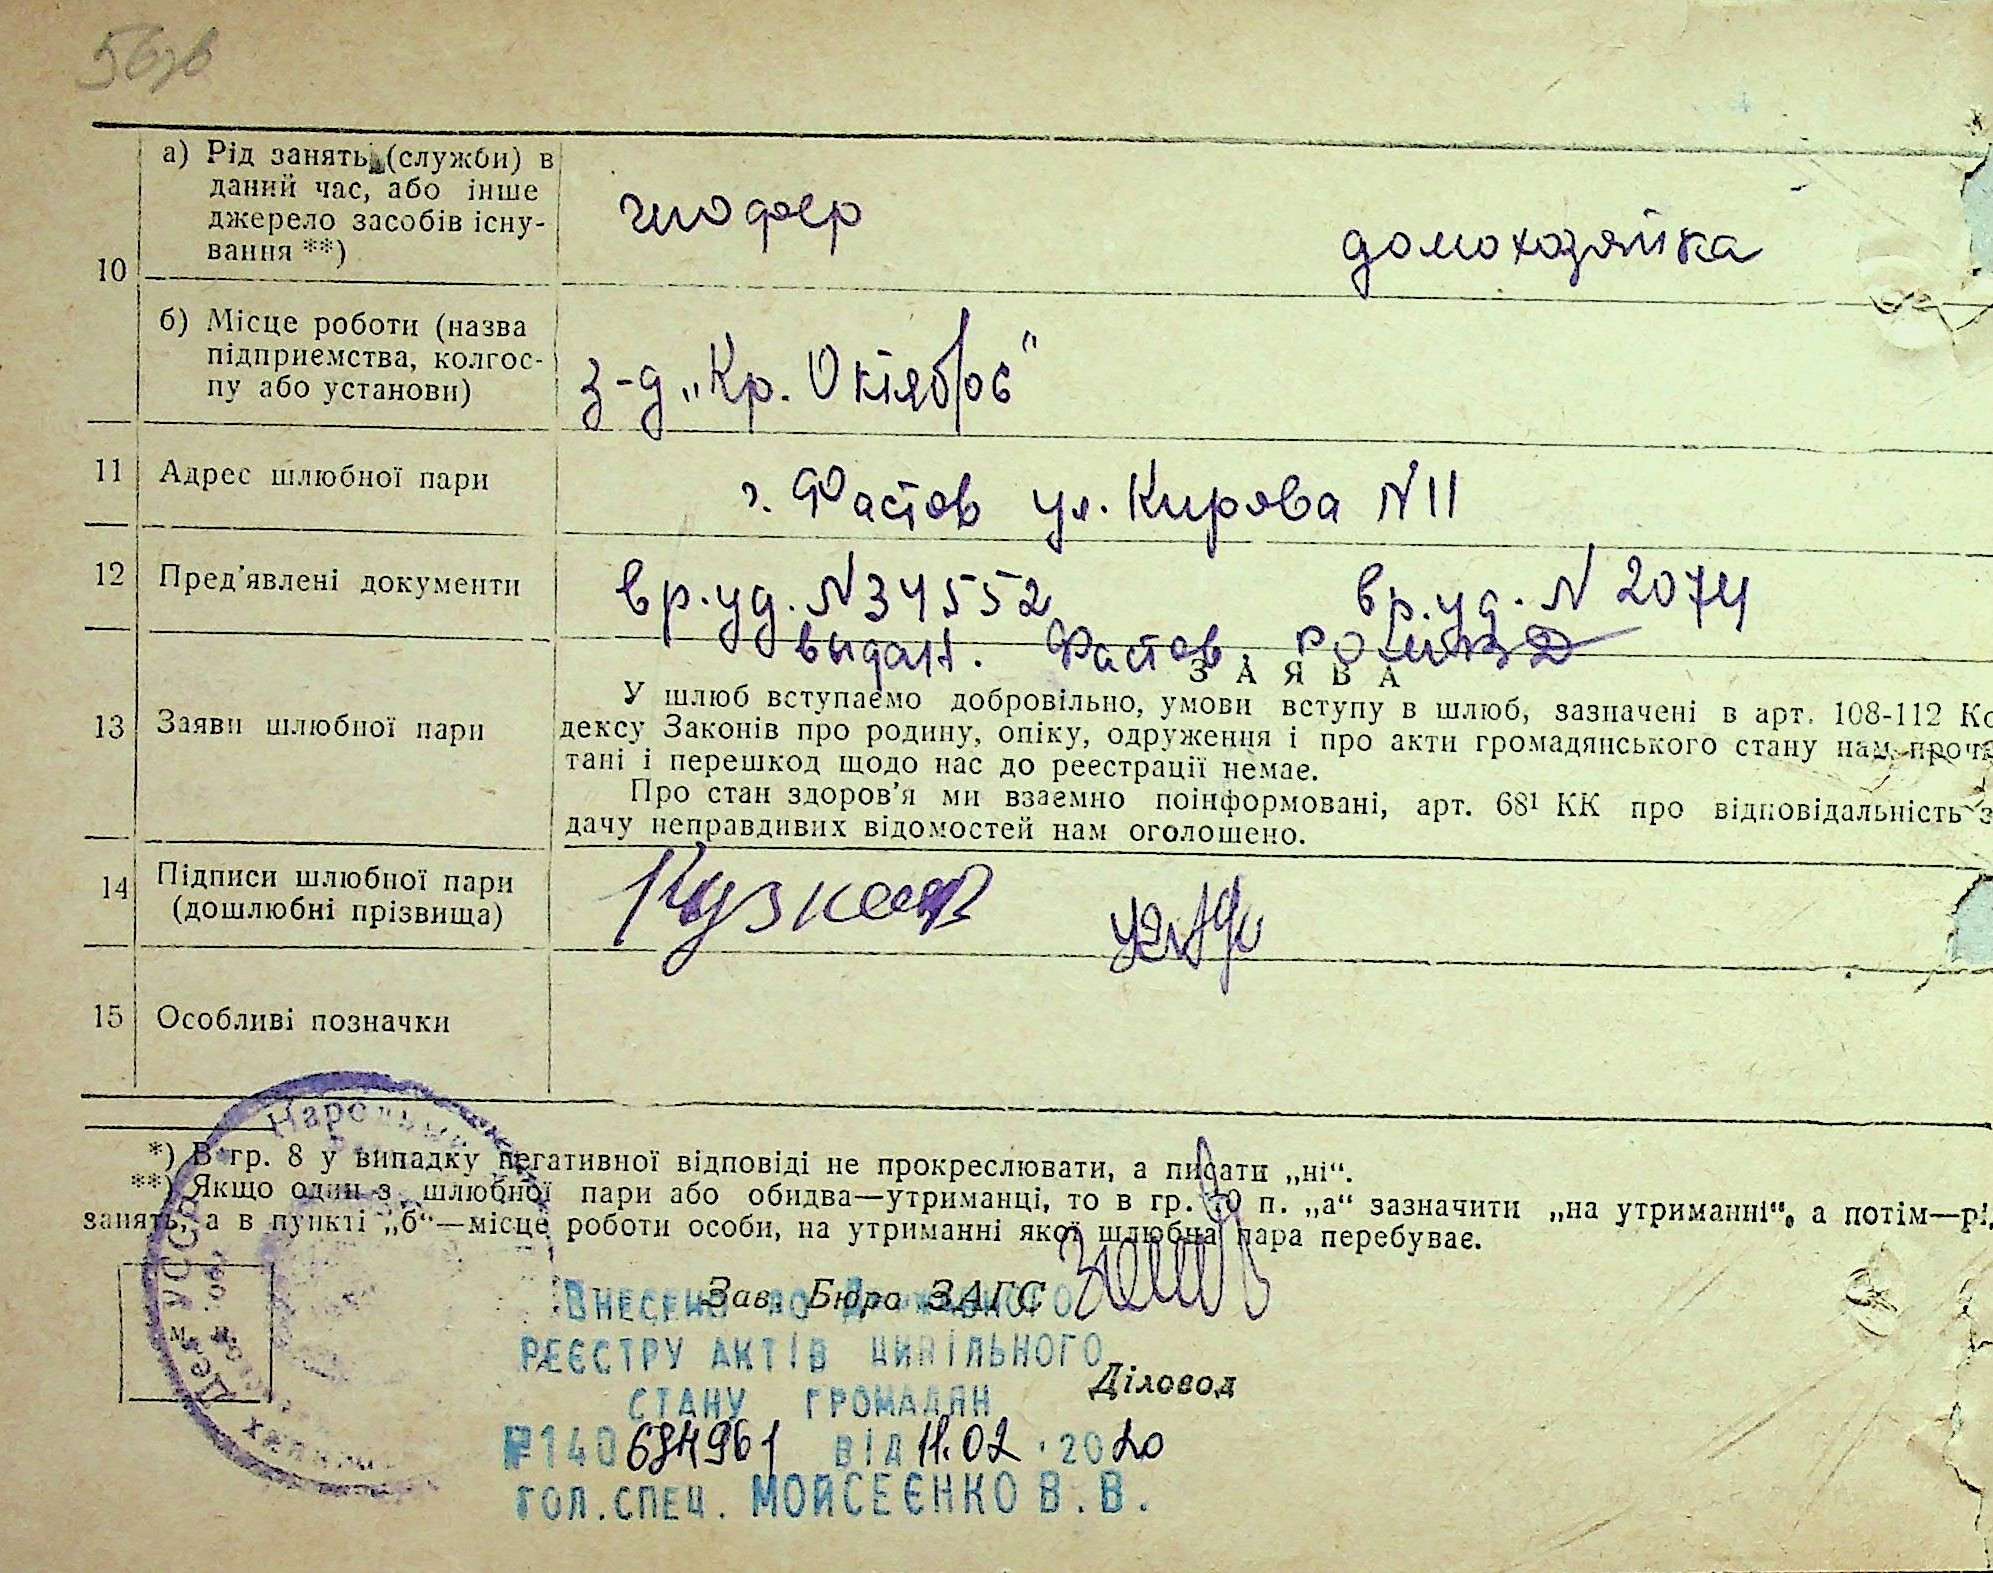 56зв
10
а) Рід занять (служби) в
даний час, або інше
джерело засобів існу-
вання **)
шофер
домохозяйка
б) Місце роботи (назва
підприємства, колгос-
пу або установи)
з-д „Кр. Октябрь"
11 Адрес шлюбної пари
г. Фастов ул. Кирова N 11
12 Пред'явлені документи
вр. уд. N 34552
вр. уд. N 2074
выдан. Фастов. РО
13 Заяви шлюбної пари
ЗАЯВА
У шлюб вступаємо добровільно, умови вступу в шлюб, зазначені в арт. 108-112 Ко
дексу Законів про родину, опіку, одруження і про акти громадянського стану нам проч
тані і перешкод щодо нас до реєстрації немає.
Про стан здоров'я ми взаємно поінформовані, арт. 68¹ КК про відповідальність з
дачу неправдивих відомостей нам оголошено.
14 Підписи шлюбної пари
(дошлюбні прізвища)
15 Особливі позначки
Народный
УССР
*) В гр. 8 у випадку негативної відповіді не прокреслювати, а писати „ні".
**) Якщо один з шлюбної пари або обидва—утриманці, то в гр. 10 п. „а" зазначити „на утриманні", а потім—рі
занять, а в пункті „б"—місце роботи особи, на утриманні якої шлюбна пара перебуває.
м. п.
Зав. Бюро ЗАГС
Діловод
ВНЕСЕНО ДО ДЕРЖАВНОГО
РЕЄСТРУ АКТІВ ЦИВІЛЬНОГО
СТАНУ ГРОМАДЯН
№ 140684961 ВІД 11.02.2020
ГОЛ.СПЕЦ. МОЙСЕЄНКО В.В.